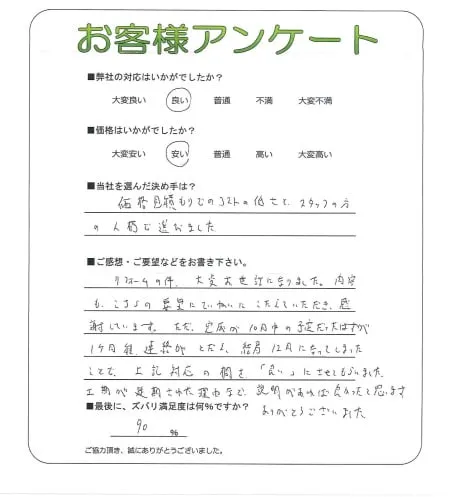 お客様アンケート
■弊社の対応はいかがでしたか?
大変良い 良い 普通 不満 大変不満
■価格はいかがでしたか?
大変安い 安い 普通 高い 大変高い
■当社を選んだ決め手は?
価格見積もりでのコストの低さと、スタッフの方
の人柄で選びました
■ご感想・ご要望などをお書き下さい。
リフォームの件、大変お世話になりました。内容
も、こちらの要望にていねいにこたえていただき、感
謝しています。ただ、完成が10月中の予定だったはずが
1ヶ月程、連絡が とだえ、結局12月になってしまった
ことで、上記対応の欄を「良い」にさせてもらいました。
工期が延期された理由など、説明があれば良かったと思います
ありがとうございました
■最後に、ズバリ満足度は何%ですか?
90 %
ご協力頂き、誠にありがとうございました。